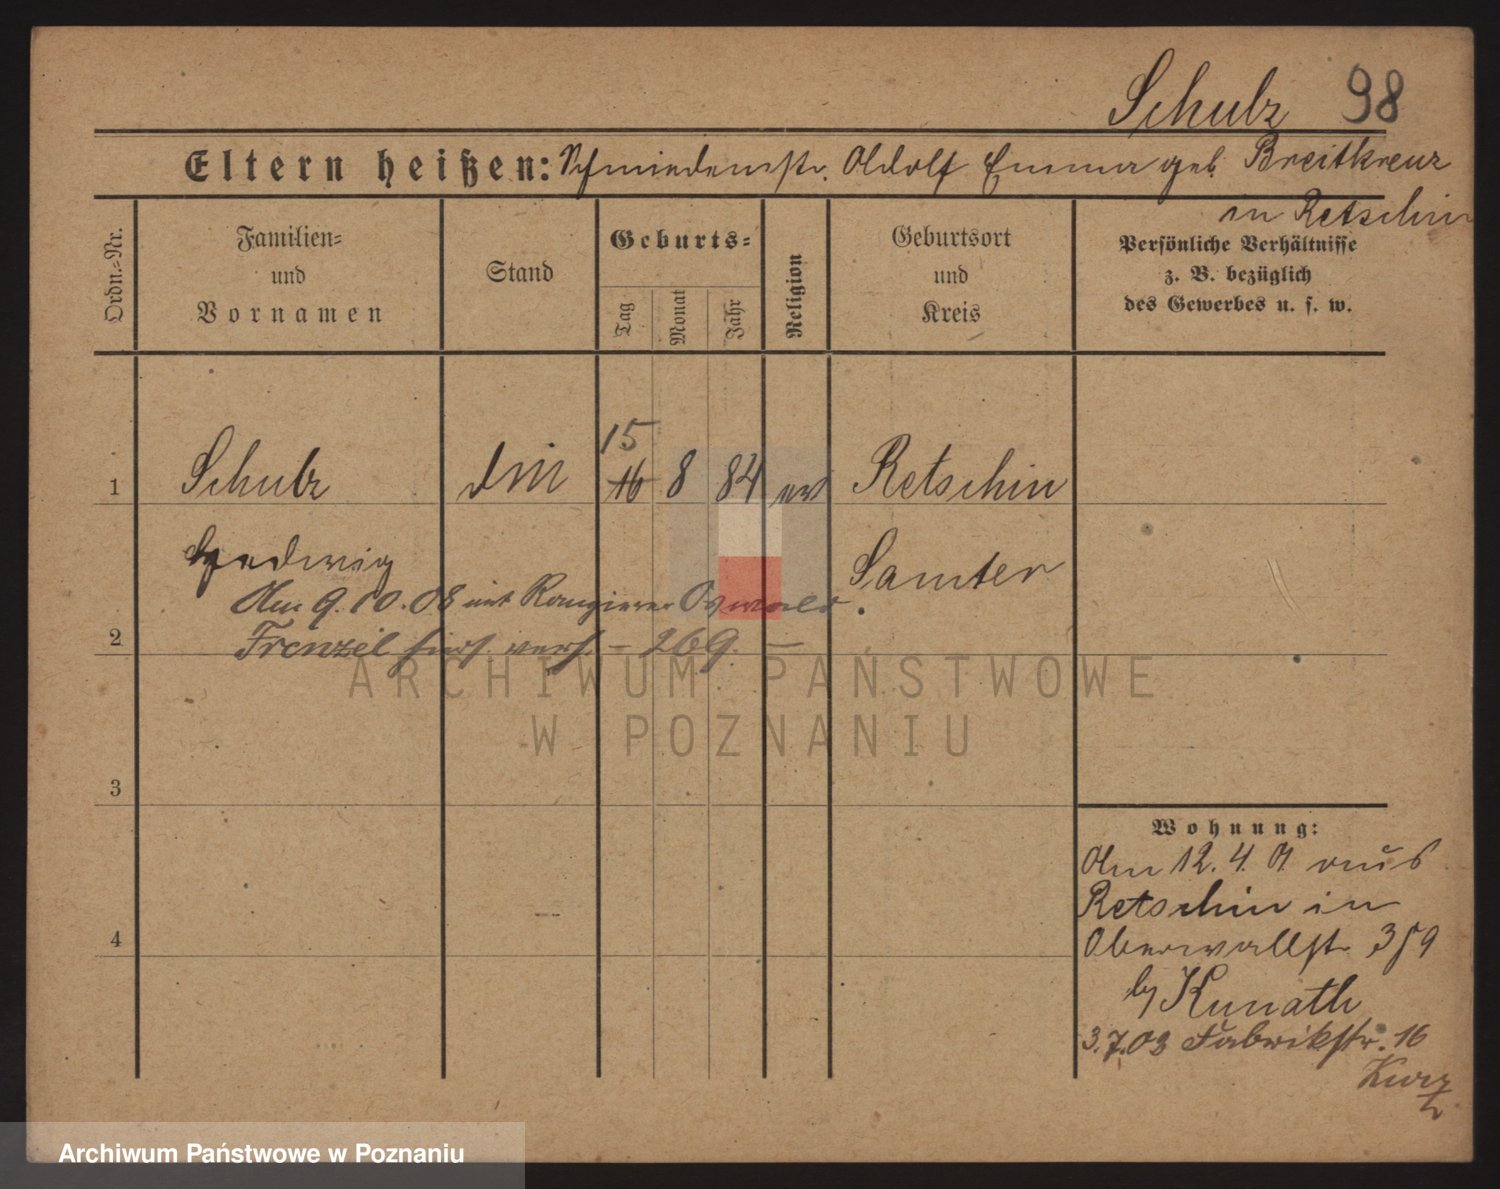 Schulz 98
Eltern heißen: Schmiedemstr. Adolf Emma geb. Breitkreuz
in Retschin
Ordn.-Nr.
Familien-
und
Vornamen
Stand
Geburts-
Tag
Monat
Jahr
Religion
Geburtsort
und
Kreis
Persönliche Verhältnisse
z. B. bezüglich
des Gewerbes u. s. w.
15
1 Schulz 16 8 84 ev Retschin
Hedwig Samter
Am 9.10.08 mit Rangierer Oswald
2 Frenzel hier verh. – 269. –
ARCHIWUM PAŃSTWOWE
W POZNANIU
3
4
Wohnung:
Am 12.4.01 aus
Retschin in
Oberwallstr.
by Kunath
3.7.03 Fabrikstr. 16
Kurz
Archiwum Państwowe w Poznaniu